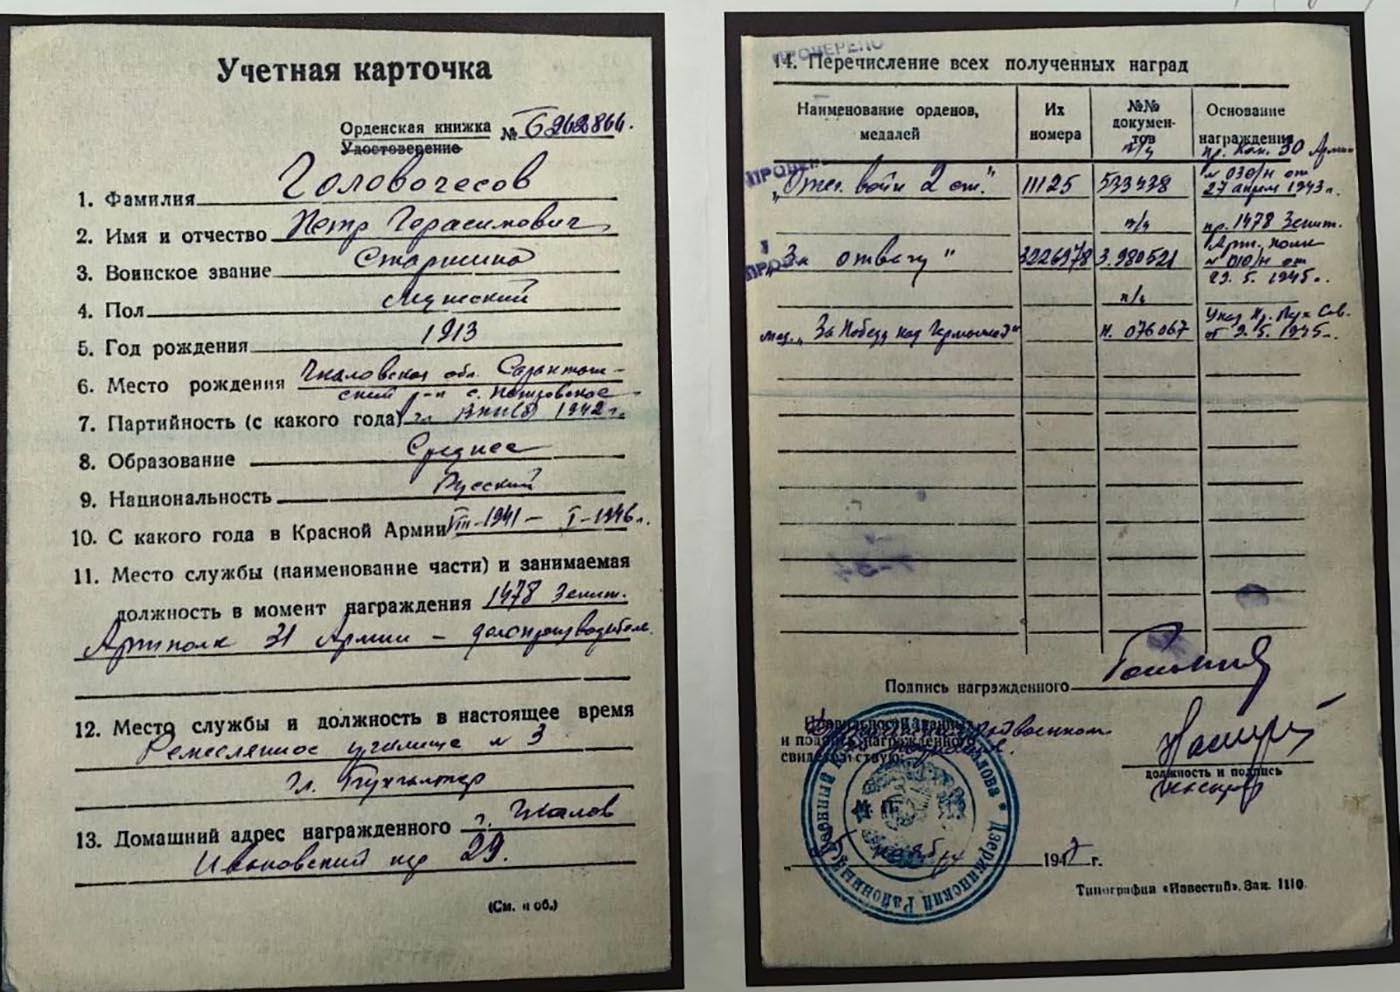 Учетная карточка
Орденская книжка № Б 262864.
Удостоверение
1. Фамилия Головочесов
2. Имя и отчество Петр Герасимович
3. Воинское звание Старшина
4. Пол Мужской
5. Год рождения 1913
6. Место рождения Чкаловская обл. Саракташ-
ский р-н с.
7. Партийность (с какого года) ВКП(б) 1942 г.
8. Образование Среднее
9. Национальность Русский
10. С какого года в Красной Армии VIII-1941 - I-1946 г.
11. Место службы (наименование части) и занимаемая
должность в момент награждения 1478 Зенит.
Артполк 31 Армии - делопроизводитель.
12. Место службы и должность в настоящее время
Ремесленное училище № 3
Гл. Бухгалтер
13. Домашний адрес награжденного г. Чкалов
Ивановский пер 29.
(См. н об.)
ПРОВЕРЕНО
14. Перечисление всех полученных наград
Наименование орденов, медалей
Их номера
№№ документов
Основание награждения
п/ц
пр. Ком. 30 Армии
„Отеч. войн 2 ст." 11125 533438 № 030/н от
27 апреля 1943 г.
п/ц пр. 1478 Зенит.
Арт. полк
„За отвагу" 3226978 З.980521 № 010/н от
23.5.1945 г.
п/ц
мед. „За Победу над Германией" Н. 076067 Указ Пр. Вер Сов.
от 9.5.1945 г.
Подпись награжденного
и подпись награжденного
свидетельствую:
должность и подпись
ноября 1947 г.
Дзержинский Районный Военный
Типография «Известий». Зак. 1110.